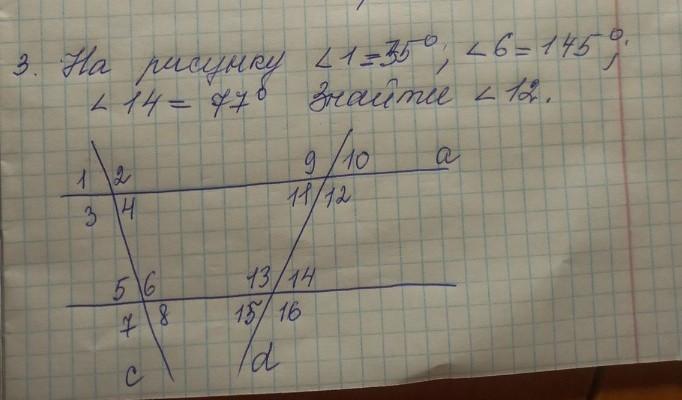 3. На рисунку ∠1=35°; ∠6=145°;
∠14=77° Знайти ∠12.
1 2 9 10 a
3 4 11 12
5 6 13 14
7 8 15 16
c d